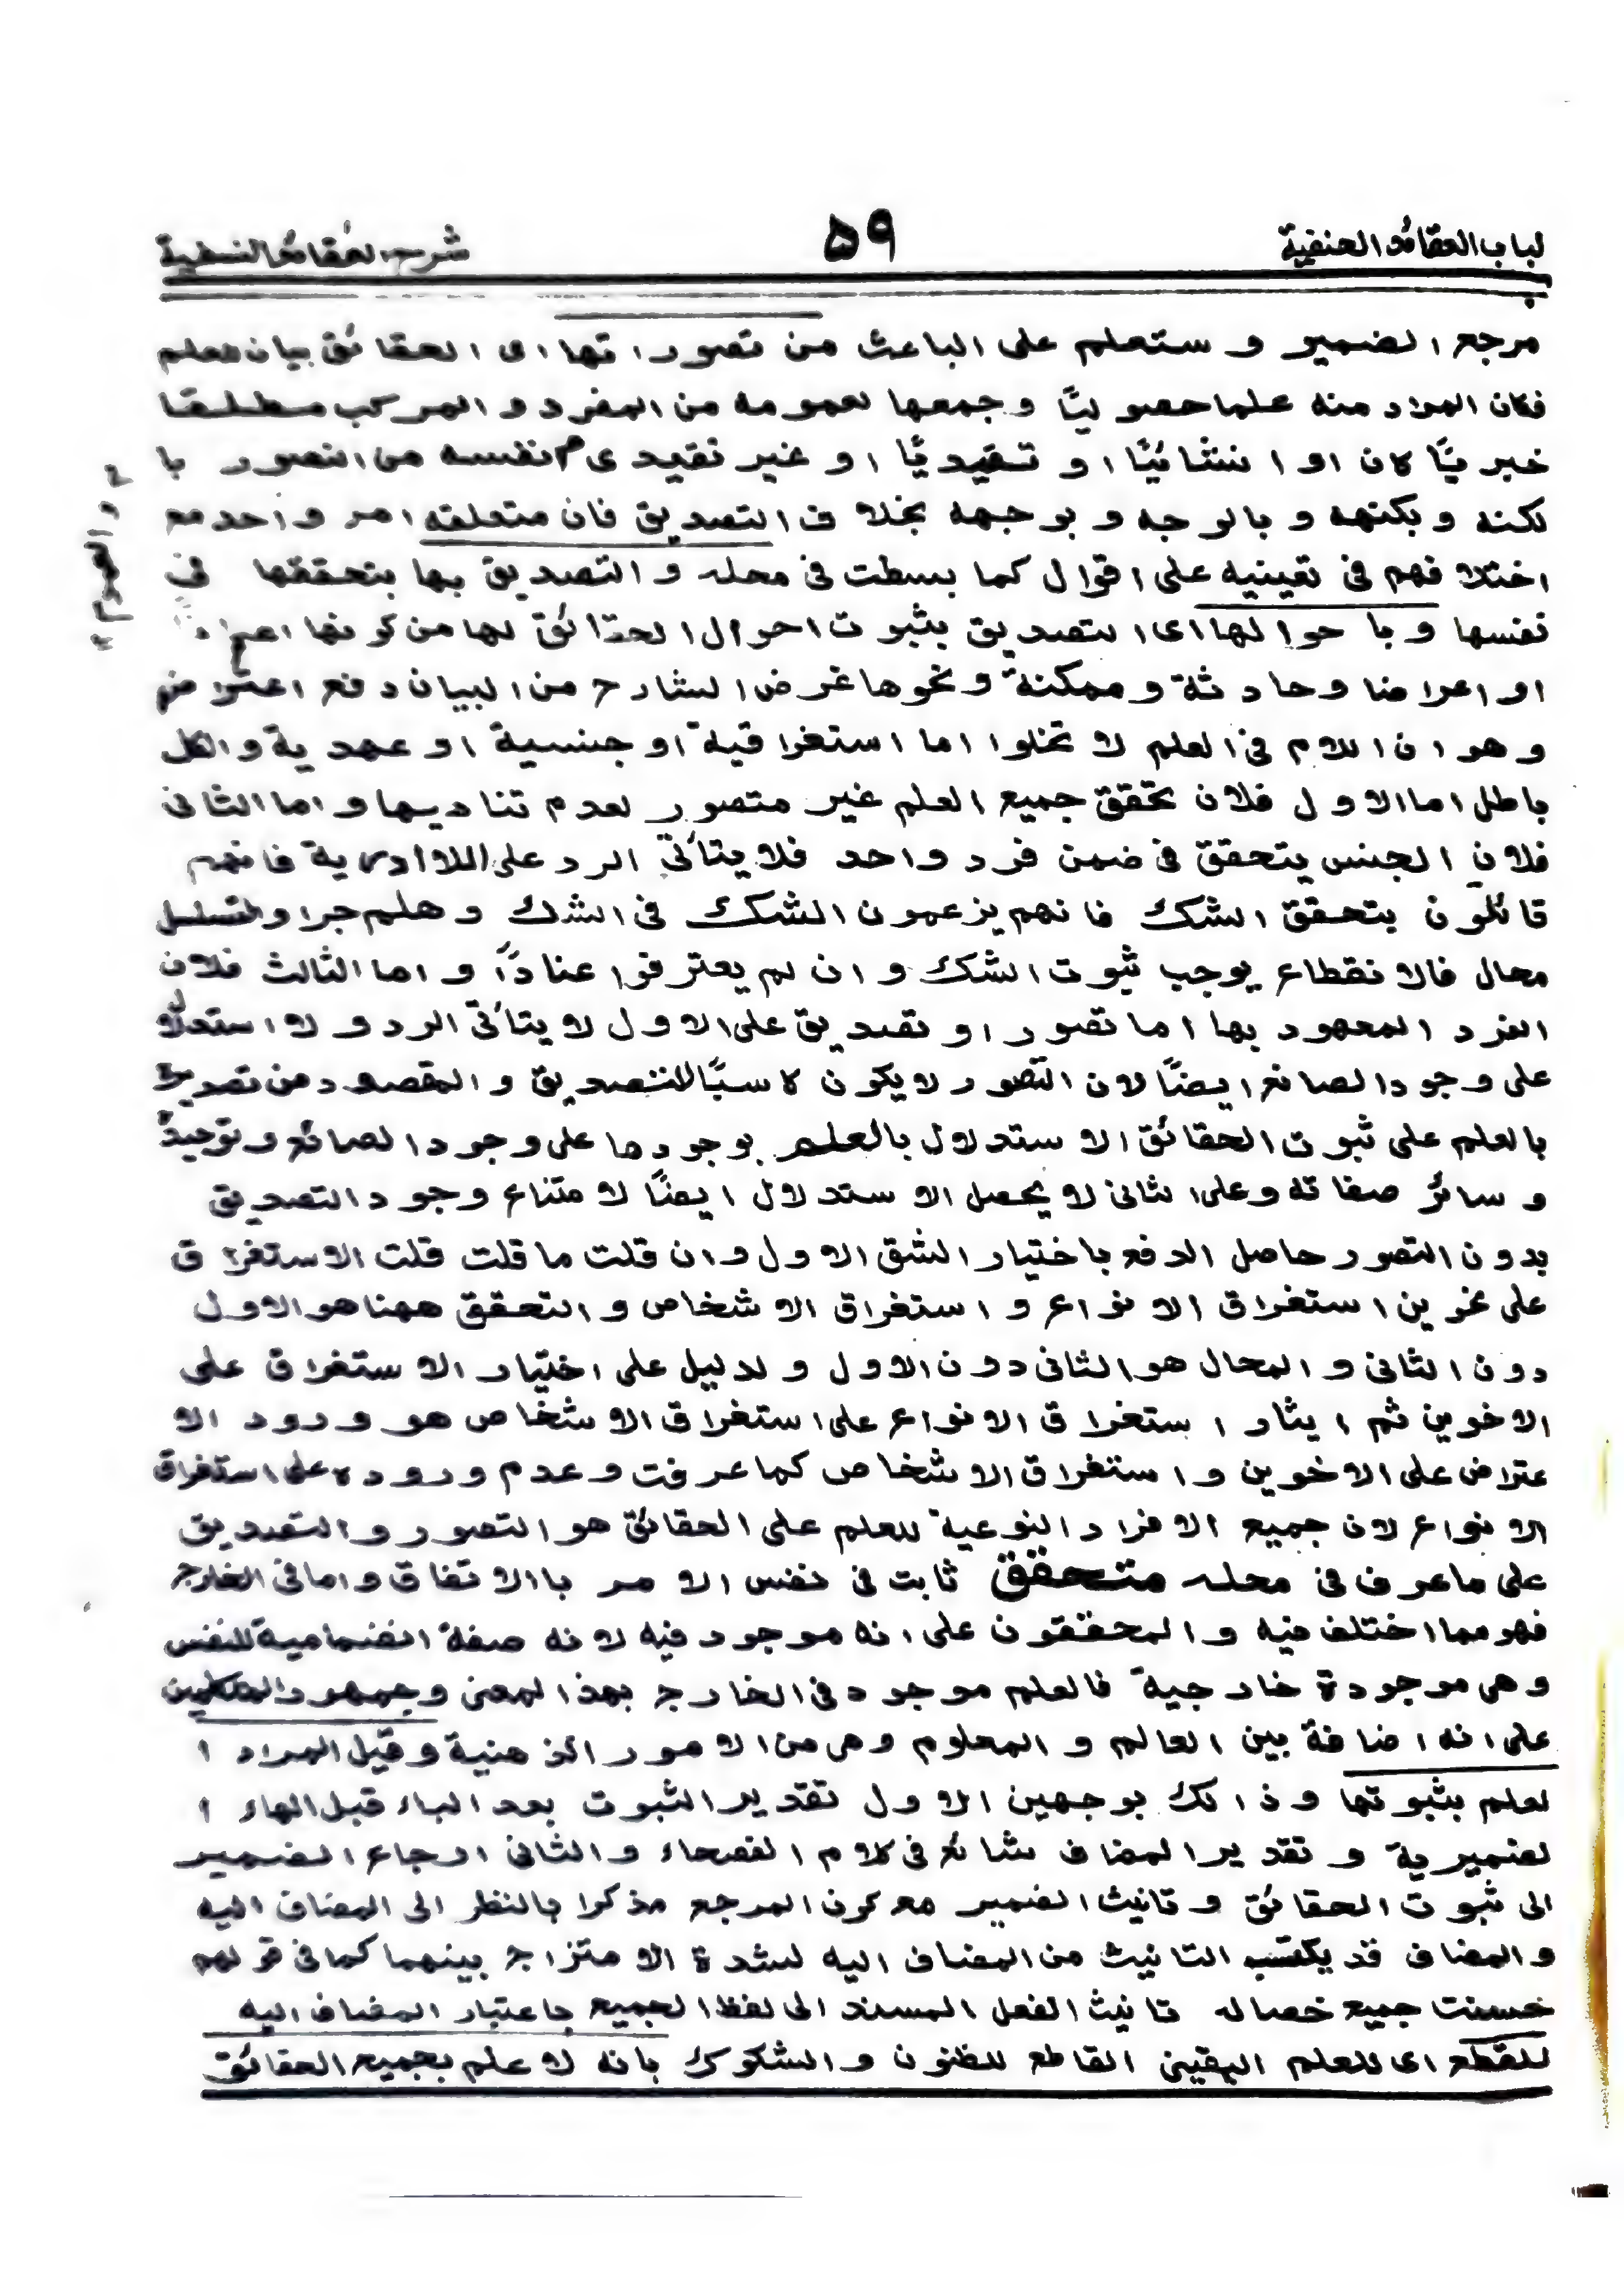 لباب العقائد الحنفية ۵۹ شرح العقائد النسفية
مرجع الضمير و ستعلم على الباعث من تصوراتها اى الحقائق بيان معلم
فكان المراد منه علما حصوليًّا و جمعها لعمومه من المفرد و المركب مطلقا
خبريًّا كان او انشائيًّا او تقيديًّا او غير تقيدى نفسه من التصور با
لكنه و بكنهه و بالوجه و بوجهه بخلاف التصديق فان متعلقه امر واحد مع
اختلافهم فى تعيينيه على اقوال كما بسطت فى محله و التصديق بها بتحققها فى
نفسها و باحوالها اى التصديق بثبوت احوال الحقائق لها من كونها
او اعراضا وحادثة و ممكنة و نحوها غرض الشارح من البيان دفع اعتراض
و هو ان اللام فى العلم لا تخلوا اما استغراقية او جنسية او عهدية و الكل
باطل اما الاول فلان تحقق جميع العلم غير متصور لعدم تناديها و اما الثانى
فلان الجنس يتحقق فى ضمن فرد واحد فلا يتأتّى الرد على اللاادرية فانهم
قائلون بتحقق الشك فانهم يزعمون الشك فى الشك و هلم جرا و التسلسل
محال فالانقطاع يوجب ثبوت الشك و ان لم يعترفوا عنادًا و اما الثالث فلان
الفرد المعهود بها اما تصور او تصديق على الاول لا يتأتى الرد و لا استدلال
على وجود الصانع ايضًا لان التصور لا يكون كاسبًا للتصديق و المقصود من تصديق
بالعلم على ثبوت الحقائق الاستدلال بالعلم بوجودها على وجود الصانع و توحيده
و سائر صفاته و على الثانى لا يحصل الاستدلال ايضًا لامتناع وجود التصديق
بدون التصور حاصل الدفع باختيار الشق الاول و ان قلت ما قلت قلت الاستغراق
على نحوين استغراق الانواع و استغراق الاشخاص و التحقق ههنا هو الاول
دون الثانى و المحال هو الثانى دون الاول و لدليل على اختيار الاستغراق على
الاخوين ثم ايثار استغراق الانواع على استغراق الاشخاص هو ورود الا
عتراض على الاخوين و استغراق الاشخاص كما عرفت و عدم وروده على استغراق
الانواع لان جميع الافراد النوعية للعلم على الحقائق هو التصور و التصديق
على ما عرف فى محله متحقق ثابت فى نفس الامر باالاتفاق و اما فى الخارج
فهو مما اختلف فيه و المحققون على انه موجود فيه لانه صفة انضمامية للنفس
و هى موجودة خارجية فالعلم موجود فى الخارج بهذا المعنى و جمهور المتكلمين
على انه اضافة بين العالم و المعلوم و هى من الامور الذهنية و قيل المراد ا
لعلم بثبوتها و ذالك بوجهين الاول تقدير الثبوت بعد الباء قبل الهاء ا
لضميرية و تقدير المضاف شائع فى كلام الفصحاء و الثانى ارجاع الضمير
الى ثبوت الحقائق و تانيث الضمير مع كون المرجع مذكرا بالنظر الى المضاف اليه
و المضاف قد يكتسب التانيث من المضاف اليه لشدة الامتزاج بينهما كما فى قولهم
حسنت جميع خصاله تانيث الفعل المسند الى لفظ الجميع باعتبار المضاف اليه
للقطع اى للعلم اليقينى القاطع للظنون و الشكوك بانه لا علم بجميع الحقائق